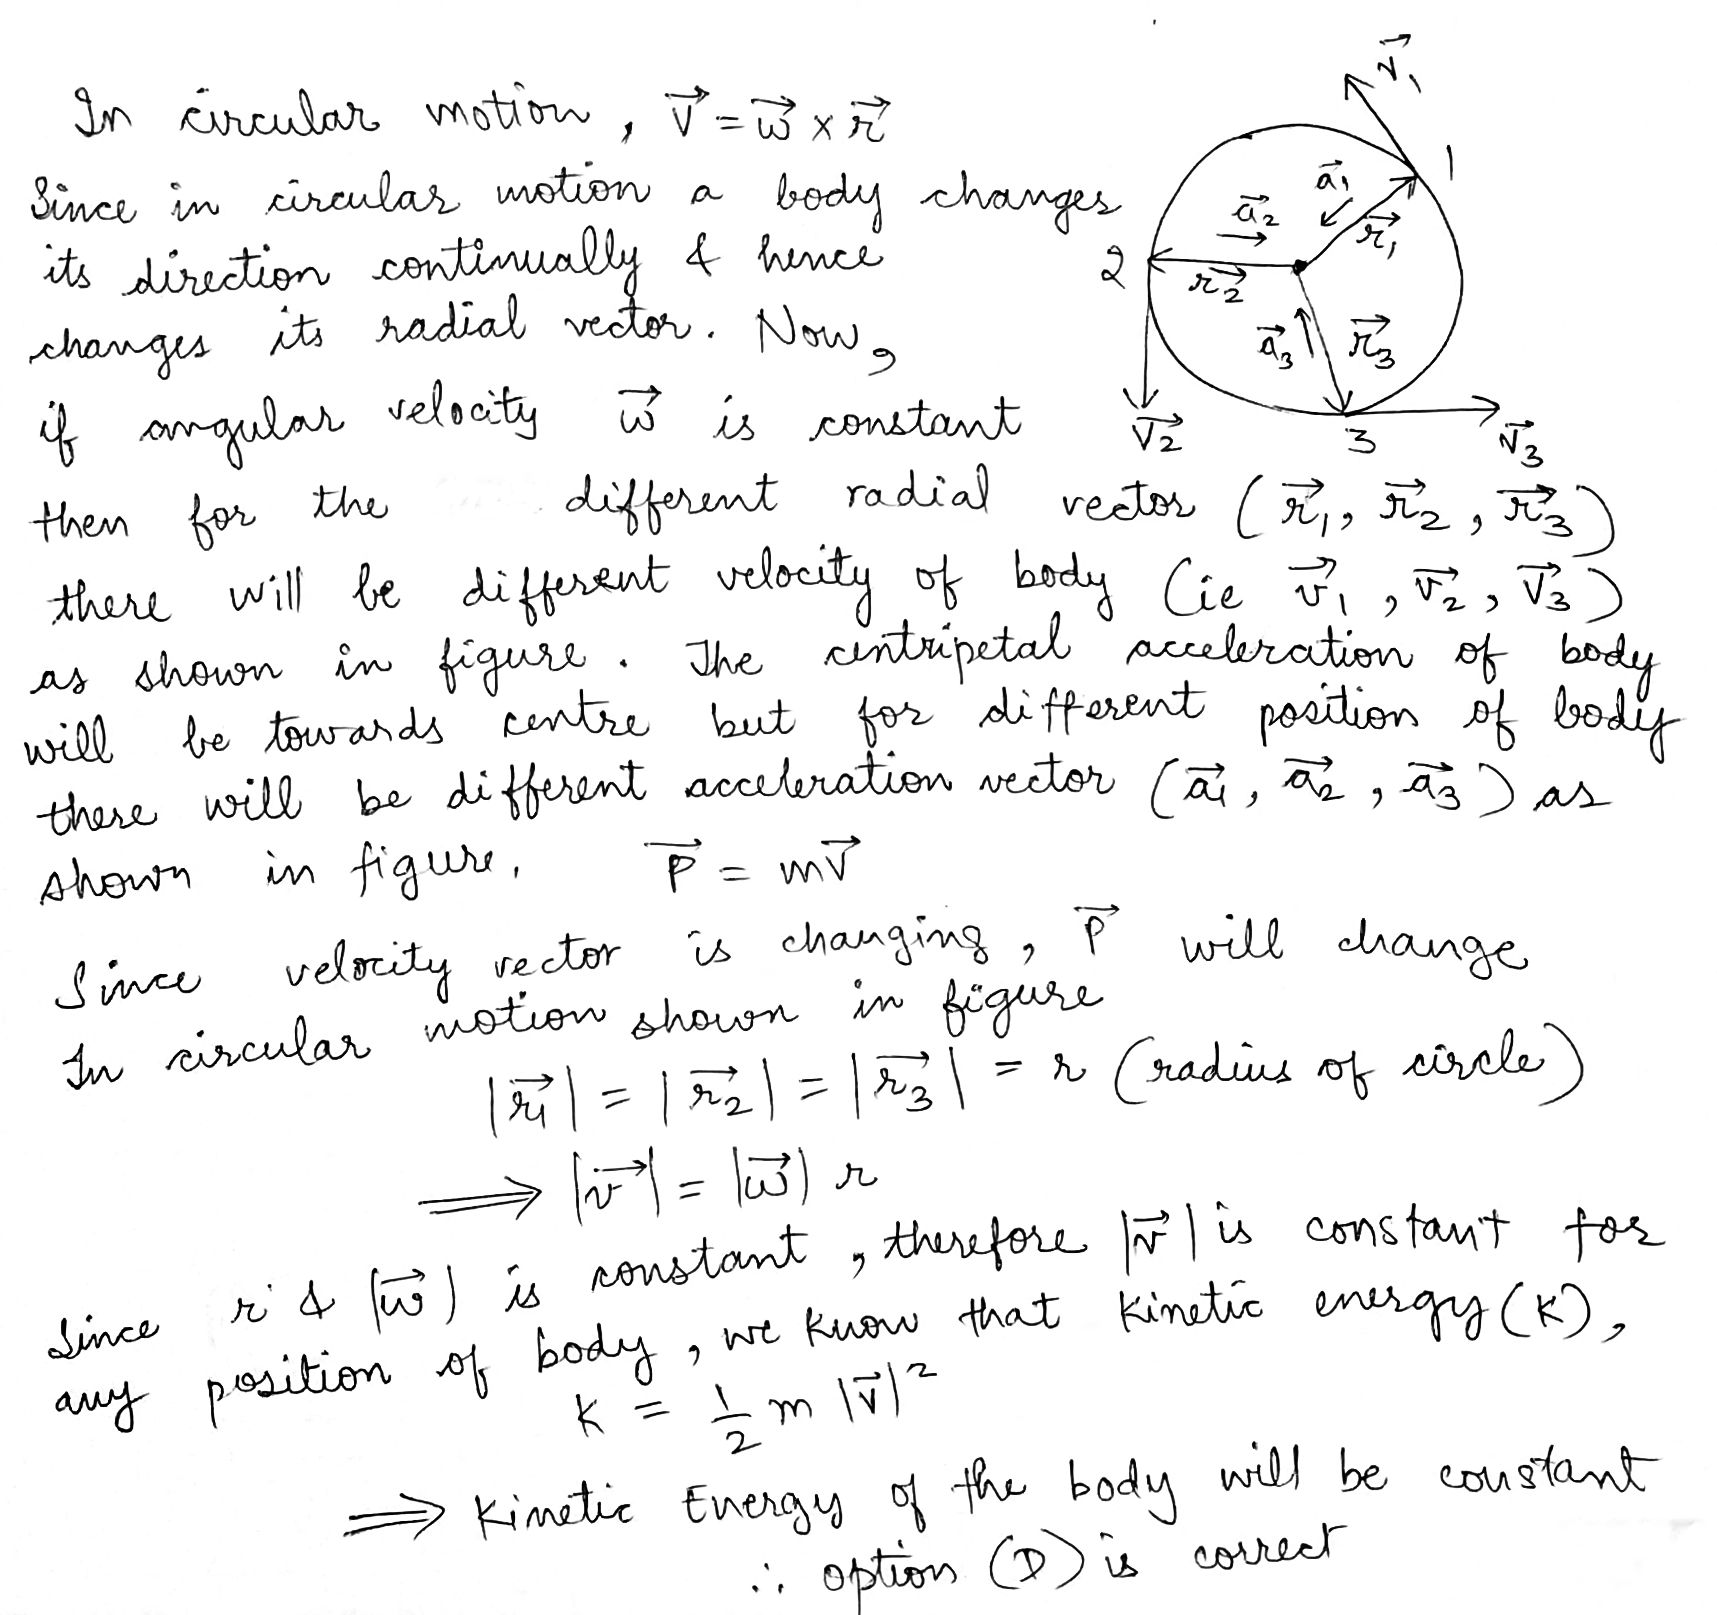 In circular motion, v⃗ = ω⃗ × r⃗
Since in circular motion a body changes
its direction continually & hence
changes its radial vector. Now,
if angular velocity ω⃗ is constant
then for the different radial vector (r⃗₁, r⃗₂, r⃗₃)
there will be different velocity of body (ie v⃗₁, v⃗₂, v⃗₃)
as shown in figure. The centripetal acceleration of body
will be towards centre but for different position of body
there will be different acceleration vector (a⃗₁, a⃗₂, a⃗₃) as
shown in figure. P⃗ = mv⃗
Since velocity vector is changing, P⃗ will change
In circular motion shown in figure
|r⃗₁| = |r⃗₂| = |r⃗₃| = r (radius of circle)
⟹ |v⃗| = |ω⃗| r
Since r & |ω⃗| is constant, therefore |v⃗| is constant for
any position of body, we know that kinetic energy (K),
K = 1/2 m |v⃗|²
⟹ Kinetic Energy of the body will be constant
∴ option (D) is correct
v⃗₁
1
a⃗₁
a⃗₂
r⃗₁
2
r⃗₂
a⃗₃
r⃗₃
v⃗₂
3
v⃗₃